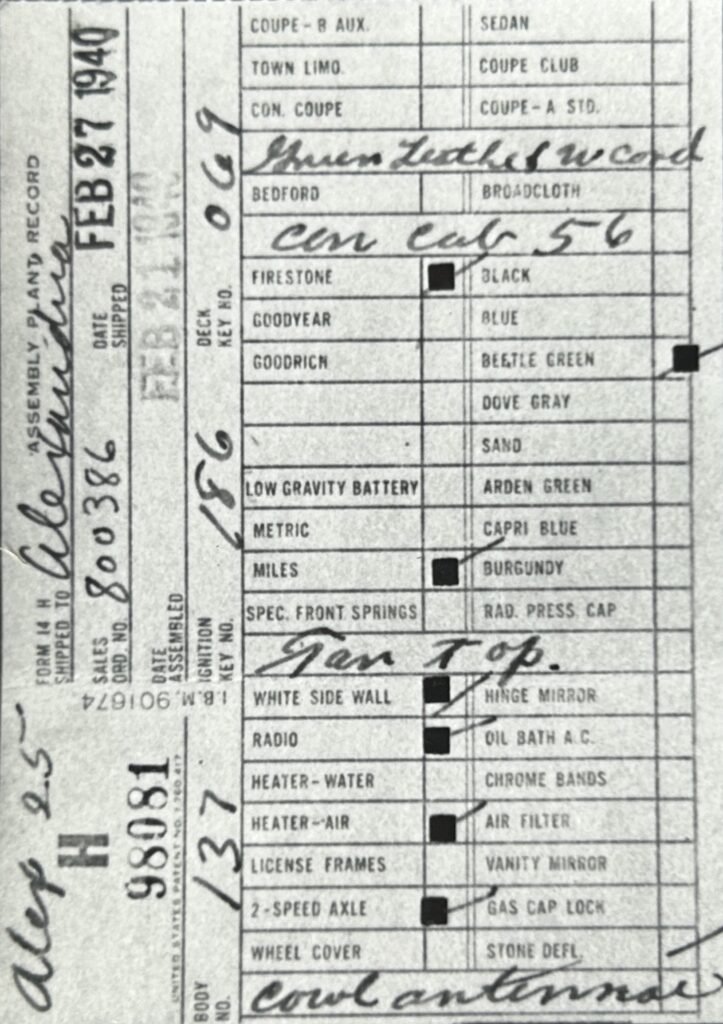 ASSEMBLY PLANT RECORD
FORM 14 H
SHIPPED TO Alexandria
SALES ORD. NO. 800386
DATE SHIPPED FEB 27 1940
DATE ASSEMBLED FEB 21 1940
IGNITION KEY NO. 186
DECK KEY NO. 069
Alex 25
H
98081
UNITED STATES PATENT NO. 1,780,417
I.B.M. 901674
BODY NO. 137
COUPE-B AUX. SEDAN
TOWN LIMO. COUPE CLUB
CON. COUPE COUPE-A STD.
Green Leather W Cord
BEDFORD BROADCLOTH
Con cab 56
FIRESTONE BLACK
GOODYEAR BLUE
GOODRICH BEETLE GREEN
DOVE GRAY
SAND
LOW GRAVITY BATTERY ARDEN GREEN
METRIC CAPRI BLUE
MILES BURGUNDY
SPEC. FRONT SPRINGS RAD. PRESS. CAP
Tan Top.
WHITE SIDE WALL HINGE MIRROR
RADIO OIL BATH A.C.
HEATER-WATER CHROME BANDS
HEATER-AIR AIR FILTER
LICENSE FRAMES VANITY MIRROR
2-SPEED AXLE GAS CAP LOCK
WHEEL COVER STONE DEFL.
Cowl antennae